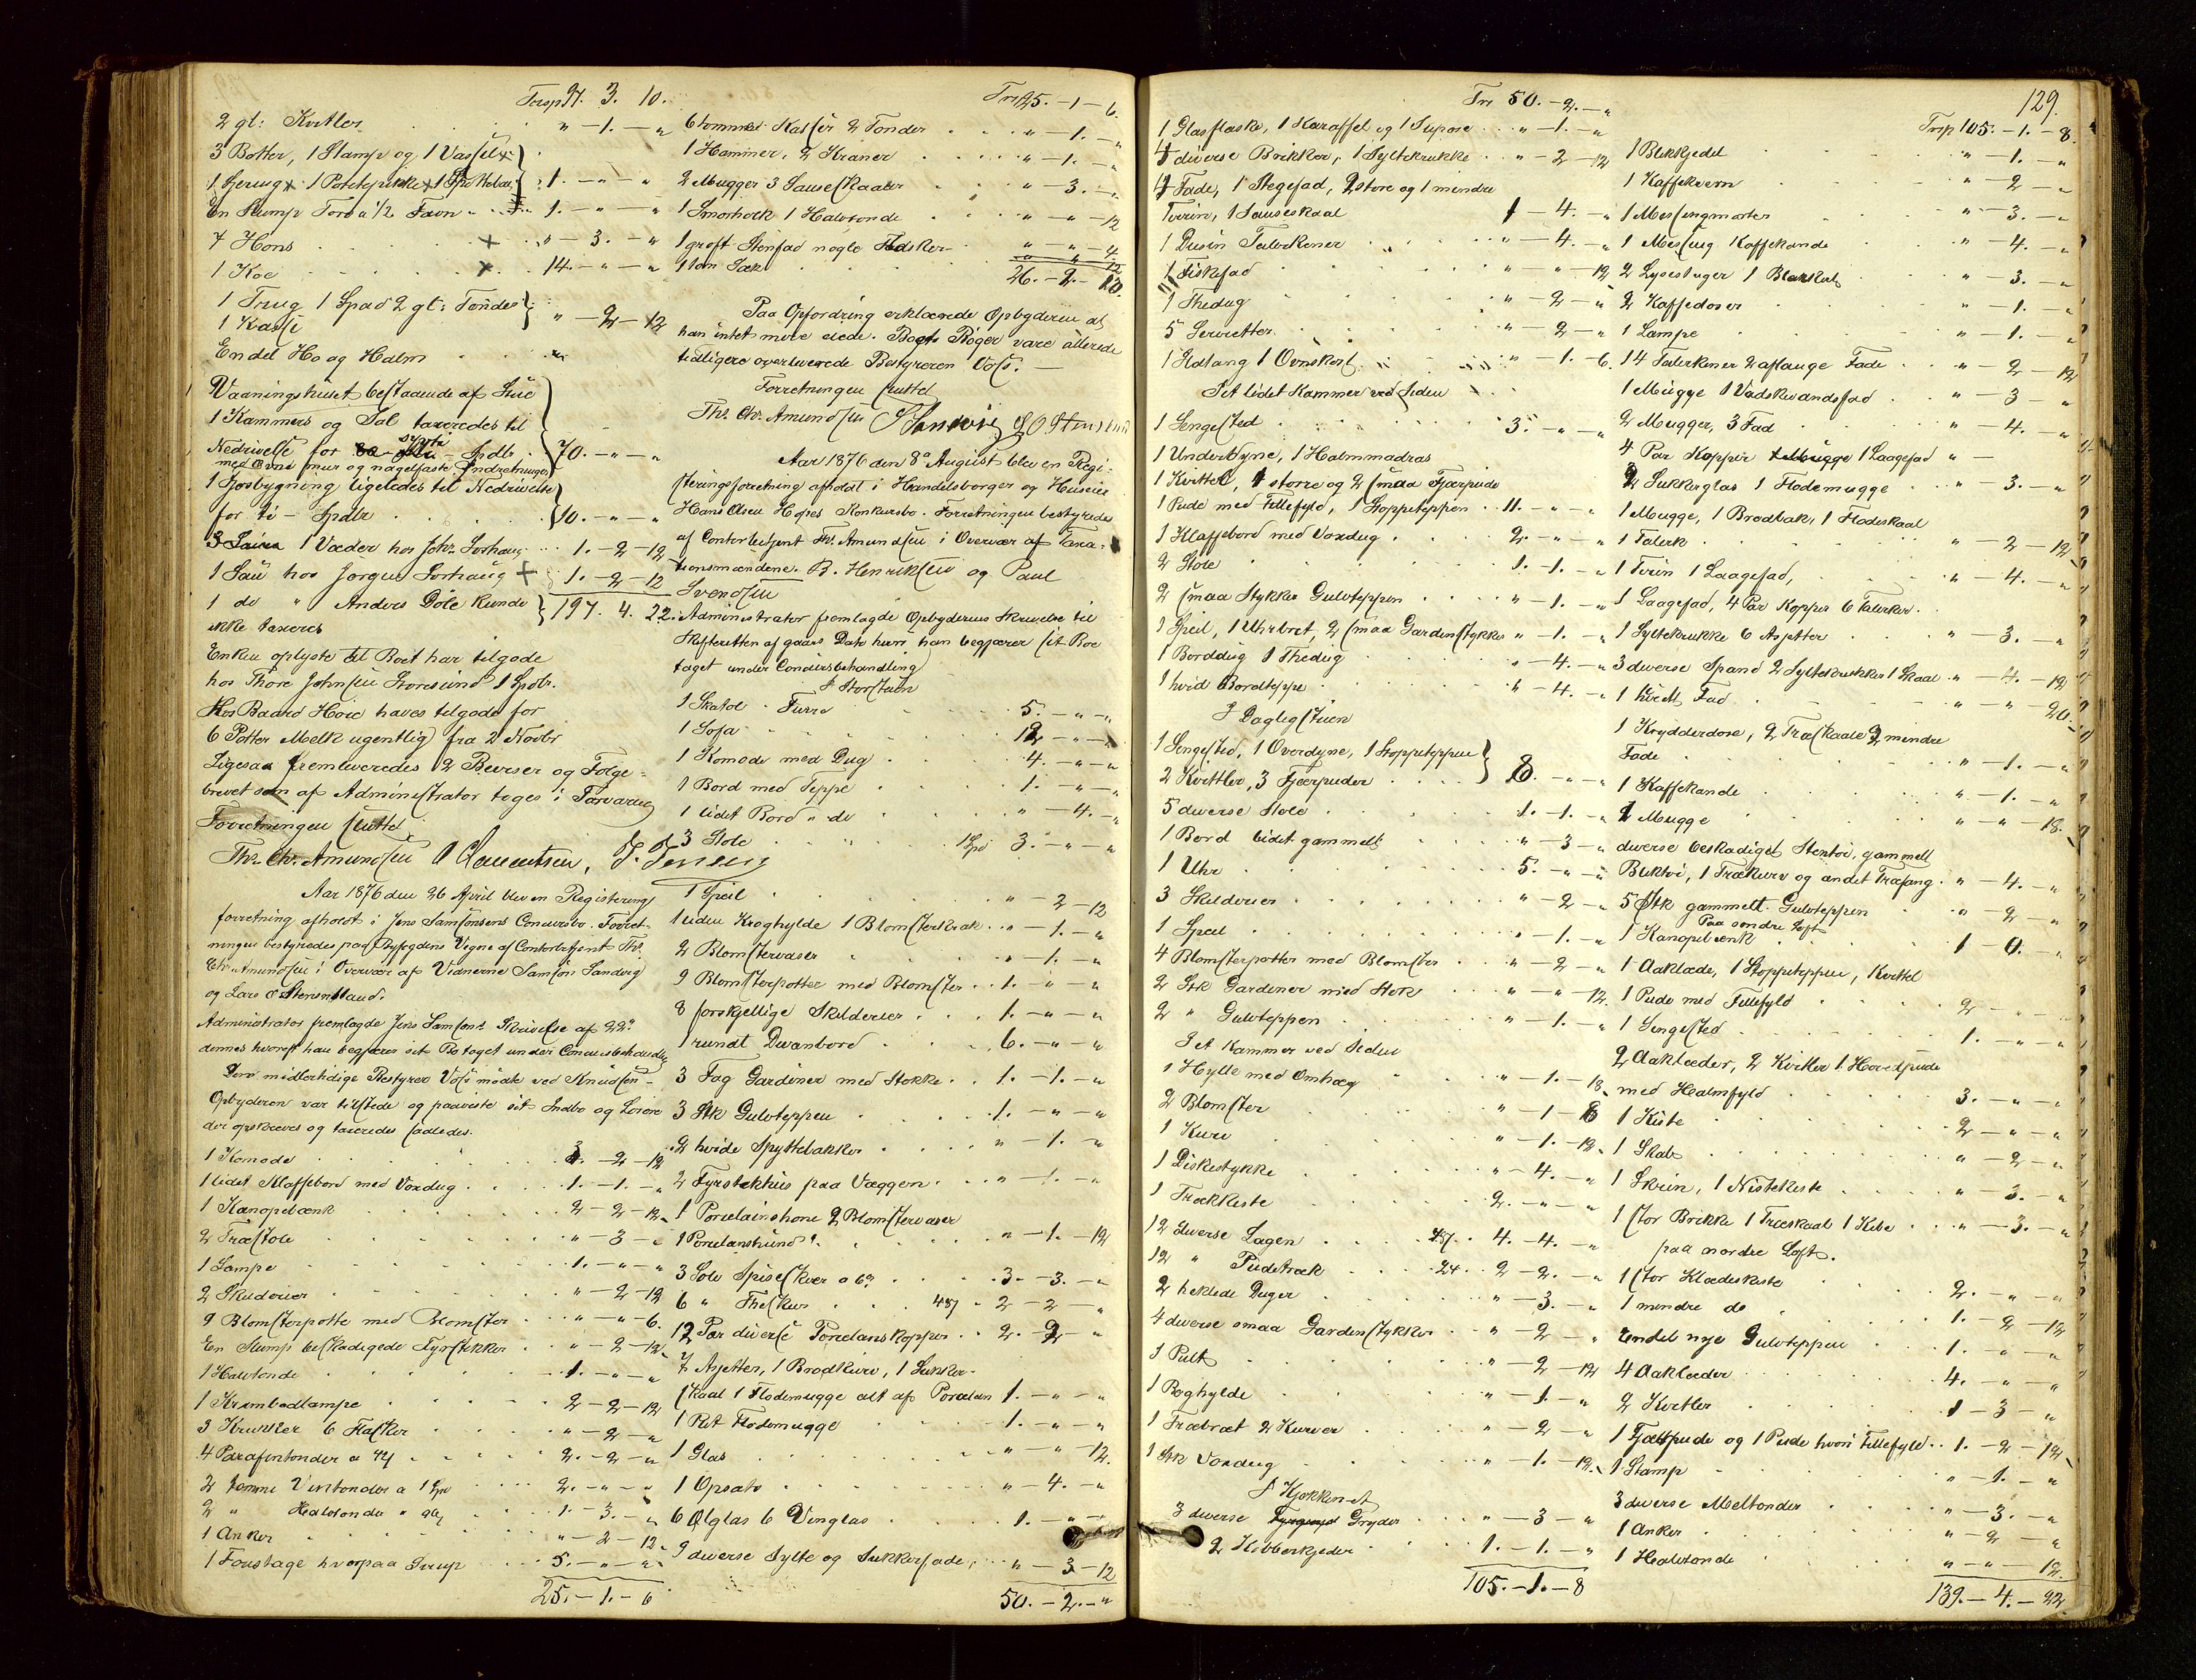 Trsp 97. 3. 10.
2 gl: Kvitler " - 1. - "
3 Bøtter, 1 Stamp og 1 Vassel
1 1 Potetgrikke 1. - " - "
En Slump Torv a 1/2 Favn 1. - " - "
7 Høns " - 3. - "
1 Koe 14. - " - "
1 Trug 1 Spad 2 gl: Tønder
1 Kasse " - 2 - 12
En del Hø og Halm
Vaaningshuset bestaaende af Stue
1 Kammers og Sal taxeredes til
Nedrivelse for sytti Spdlr 70. - " - "
med Ovne mur og nagelfaste Indretninger
1 Løsbygning ligeledes til Nedrivelse
for ti - Spdlr 10. - " - "
1 Væder hos Johs. Sørhaug 1. - 2 - 12
1 Sau hos Jørgen Sørhaug 1. - 2 - 12
1 do " Anders Døle kunde 197. 4. 22.
ikke taxeres
Enken oplyste at Boet har tilgode
hos Thore Johnsen Storesund 1 Spdlr.
Hos Baard Høie haves tilgode for
6 Potter Melk ugentlig fra 2 Novbr
Ligesaa fremleveredes 2 Beviser og Følge-
brevet som af Administrator toges i Forvaring
Forretningen sluttet
Th. Chr. Amundsen O Clementsen, J. Jensen
Aar 1876 den 26 April blev en Registerings
forretning afholdt i Jens Samsonsens Concursbo. Forret-
ningen bestyredes paa Byfogdens Vegne af Contorbetjent Th.
Chr Amundsen i Overvær af Vidnerne Samson Sandvig
og Lars O Stensland.
Administrator fremlagde Jens Samsons. Skrivelse af 22de
dennes hvoraf han begjærer sit Bo taget under Concursbehandling
Den midlertidige Bestyrer Voss mødte ved Knudsen -
Opbyderen var tilstede og paaviste sit Indbo og Løsøre
der opskreves og taxeredes saaledes.
1 Komode 3. - 2 - 12
1 lidet Klaffebord med Voxdug 1. - 1. - "
1 Kanapebænk 2 - 2 - 12
2 Træstole " - 3 - "
1 Lampe 1. - " - "
2 Skilderier " - 2 - 12
9 Blomsterpotte med Blomster " - " - 6.
En Slump beskadigede Fyrstikker " - 2 - 12
1 Halvtønde 1. - " - "
1 Krambodlampe 2 - 2 - 12
3 Krukker 6 Flasker " - 2 - "
4 Parafintønder a 2. - 2 - "
2 tomme Vintønder a 1 Spd 2. - " - "
2 " Halvtønder " 1 - 3. - "
1 Anker " - 2 - 12.
1 Foustage hvorpaa Sirup 5. - " - "
25. - 1. - 6
Trsp 25. - 1 - 6.
6 tomme Kasser 2 Tønder " - 1. - "
1 Hammer, 2 Kraner " - 1. - "
2 Mugger 3 Sauseskaaler " - 3. - "
1 Smørholk 1 Halvtønde " - " - 12
1 groft Stenfad nogle Flasker " - " - 4
1 tom Sæk 12
26. - 2. - 10.
Paa Opfordring erklærede Opbyderen at
han intet mere eiede. Boets Bøger vare allerede
tidligere overleverede Bestyreren Voss. -
Forretningen sluttet
Th. Chr. Amundsen S Sandvig L O Stensland
Aar 1876 den 8de August blev en Regi-
steringsforretning afholdt i Handelsborger og Huseier
Hans Olsen Høies Konkursbo. Forretningen bestyredes
af Contorbetjent Th. Amundsen i Overvær af Taxa-
tionsmændene. B. Henriksen og Paul
Svendsen
Administrator fremlagde Opbyderens Skrivelse til
Skifteretten af gaars Dato hvori han begjærer sit Boe
taget under Concursbehandling
I Storstuen
1 Skatol - Furre 5. - " - "
1 Sofa 12 - " - "
1 Komode med Dug 4. - " - "
1 Bord med Teppe 1. - " - "
1 lidet Bord " do " - 4. - "
3 Stole 1 Spd 3. - " - "
1 Speil " - 2 - 12
1 liden Kroghylde 1 Blomsterkrak " - 1. - "
2 Blomstervaser " - 1. - "
9 Blomsterpotter med Blomster 1. - " - "
8 forskjellige Skilderier 1. - " - "
1 rundt Divanbord 6. - " - "
3 Fag Gardiner med Stokke 1. - 1. - "
3 Stk Gulvteppen 1. - " - "
2 hvide Spyttebakker " - 1. - "
2 Fyrstikhus paa Væggen " - 1. - "
1 Porcelainshøne 2 Blomstervaser
1 Porcelanshund " - 1. - 12
3 Sølv Spiseskeer a 6 3. - 3. - "
6 " Theskeer 2 - 2 - "
12 Par diverse Porcelænskopper 2. - 2 - "
7 Asjetter, 1 Brødkurv, 1 Sukker-
skaal 1 Flødemugge alt af Porcelæn 1. - " - "
1 Plet Flødemugge 1. - " - "
1 Glas " - " - 12.
1 Opsats " - 4. - "
6 Ølglas 6 Vinglas 1. - " - "
9 diverse Sylte og Sukkerfade, " - 3 - 12
50. - 2. - "
129.
Trsp 50. - 2. - "
1 Glasflaske, 1 Karaffel og 1 " - 1. - "
4 diverse Brikker, 1 Syltekrukke " - 2 - 12
4 Fade, 1 Stegefad, 2 store og 1 mindre
Terrin, 1 Sauseskaal 1 - 4. - "
1 Dusin Tallerkener " - 4. - "
1 Fiskefad " - " - 12
1 Thedug " - 2 - "
5 Servietter " - 2 - "
1 Ildtang 1 Ovnskost " - 1. - 6.
I et lidet Kammer ved Siden
1 Sengested 3. - " - "
1 Underdyne, 1 Halmmadras
1 Kvittel, 1 større og 2 smaa Fjærpuder
1 Pude med Fillefyld, 1 Stoppeteppen 11. - " - "
1 Klaffebord med Voxdug 2. - " - "
2 Stole 1. - 1. - "
2 smaa Stykker Gulvteppen " - 1. - "
1 Speil, 1 Uhrbret, 2 smaa Gardinstykker " - 1. - "
1 Borddug 1 Thedug " - 4. - "
1 hvid Bordteppe " - 4. - "
I Dagligstuen
1 Sengested, 1 Overdyne, 1 Stoppeteppen
2 Kvittler, 3 Fjærpuder 8. - " - "
5 diverse Stole 1. - 1. - "
1 Bord lidet gammelt " - 3 - "
1 Uhr 5. - " - "
3 Skilderier " - 2 - "
1 Speil " - 1. - "
4 Blomsterpotter med Blomster " - 2 - "
2 Stk Gardiner med Stok " - " - 12.
2 " Gulvteppen " - 1. - "
I et Kammer ved Siden
1 Hylle med Omhæng " - 1. - 18.
2 Blomster " - 1 - 8
1 Kurv " - 1. - 12.
1 Diskestykke " - 4. - "
1 Trækkiste 2. - " - "
12 diverse Lagen 4. - 4. - "
12 " Pudetræk 24 2 - 2. - "
2 heklede Duger " - 3. - "
4 diverse smaa Gardinstykker " - 2 - "
1 Pult " - 2 - 12
1 Boghylde " - 1. - "
1 Træbræt 2 Kurver " - 2 - "
1 Stk Voxdug " - 1. - 12.
I Kjøkkenet
3 diverse Gryder " - 3 - "
2 Kobberkjeder 1. - 1. - "
105. - 1. - 8
Trsp 105. - 1. - 8.
1 Blikkjedel " - 1. - "
1 Kaffekvern " - 2 - "
1 Messingmorter " - 3. - "
1 Messing Kaffekande " - 4. - "
2 Lysestager 1 " - 3. - "
2 Kaffedoser " - 1. - "
1 Lampe " - 1. - "
14 Tallerkener 2 aflange Fade " - 2 - 12
1 Mugge 1 Vadskevandsfad " - 3 - "
2 Mugger, 3 Fad " - 4. - "
4 Par Kopper 1 Mugge 1 Laagefad
2 Sukkerglas 1 Flødemugge " - 3. - "
1 Mugge, 1 Brødbak, 1 Flødeskaal
1 Talerk " - 2 - 12
1 Terin 1 Laagefad, " - 4. - "
1 Laagefad, 4 Par Kopper 6 Talerker
1 Syltekrukke 6 Asjetter " - 3. - "
3 diverse Spand 2 Syltekrukker 1 Skaal " - 4. - 12
1 hvidt Fad " - " - 20.
1 Krydderdose, 2 Træskaale 2 mindre
Fade " - 1. - "
1 Kaffekande " - 1. - "
2 Mugge " - " - 18.
diverse beskadiget Stentøi, gammelt
Bliktøi, 1 Trækurv og andet Træfang " - 4. - "
5 Stk gammelt Gulvteppen " - 2 - "
Paa søndre Loft
1 Kanapebænk 1 - 0. - "
1 Aaklæde, 1 Stoppeteppen, Kvittel
1 Pude med Fillefyld 2 - " - "
1 Sengested 1. - " - "
2 Aaklæder, 2 Kvitler 1 Hovedpude
med Halmfyld 3. - " - "
1 Kiste 2 - " - "
1 Skab " - 2 - "
1 Skrin, 1 Nistekiste " - 3. - "
1 stor Brikke 1 Træskaal 1 Kibe " - 3. - "
paa nordre Loft.
1 stor Klædeskiste 2. - " - "
1 mindre do 1. - 2 - 12
Endel nye Gulvteppen 1. - " - "
4 Aaklæder 4. - " - "
2 Kvitler 1 - 3 - "
1 Fjærpude og 1 Pude hvori Fillefyld 1. - 2 - 12
1 Stamp " - 1. - "
3 diverse Meltønder " - 3. - "
1 Anker " - 2 - "
1 Halvtønde " - " - 12.
139. - 4. - 22.